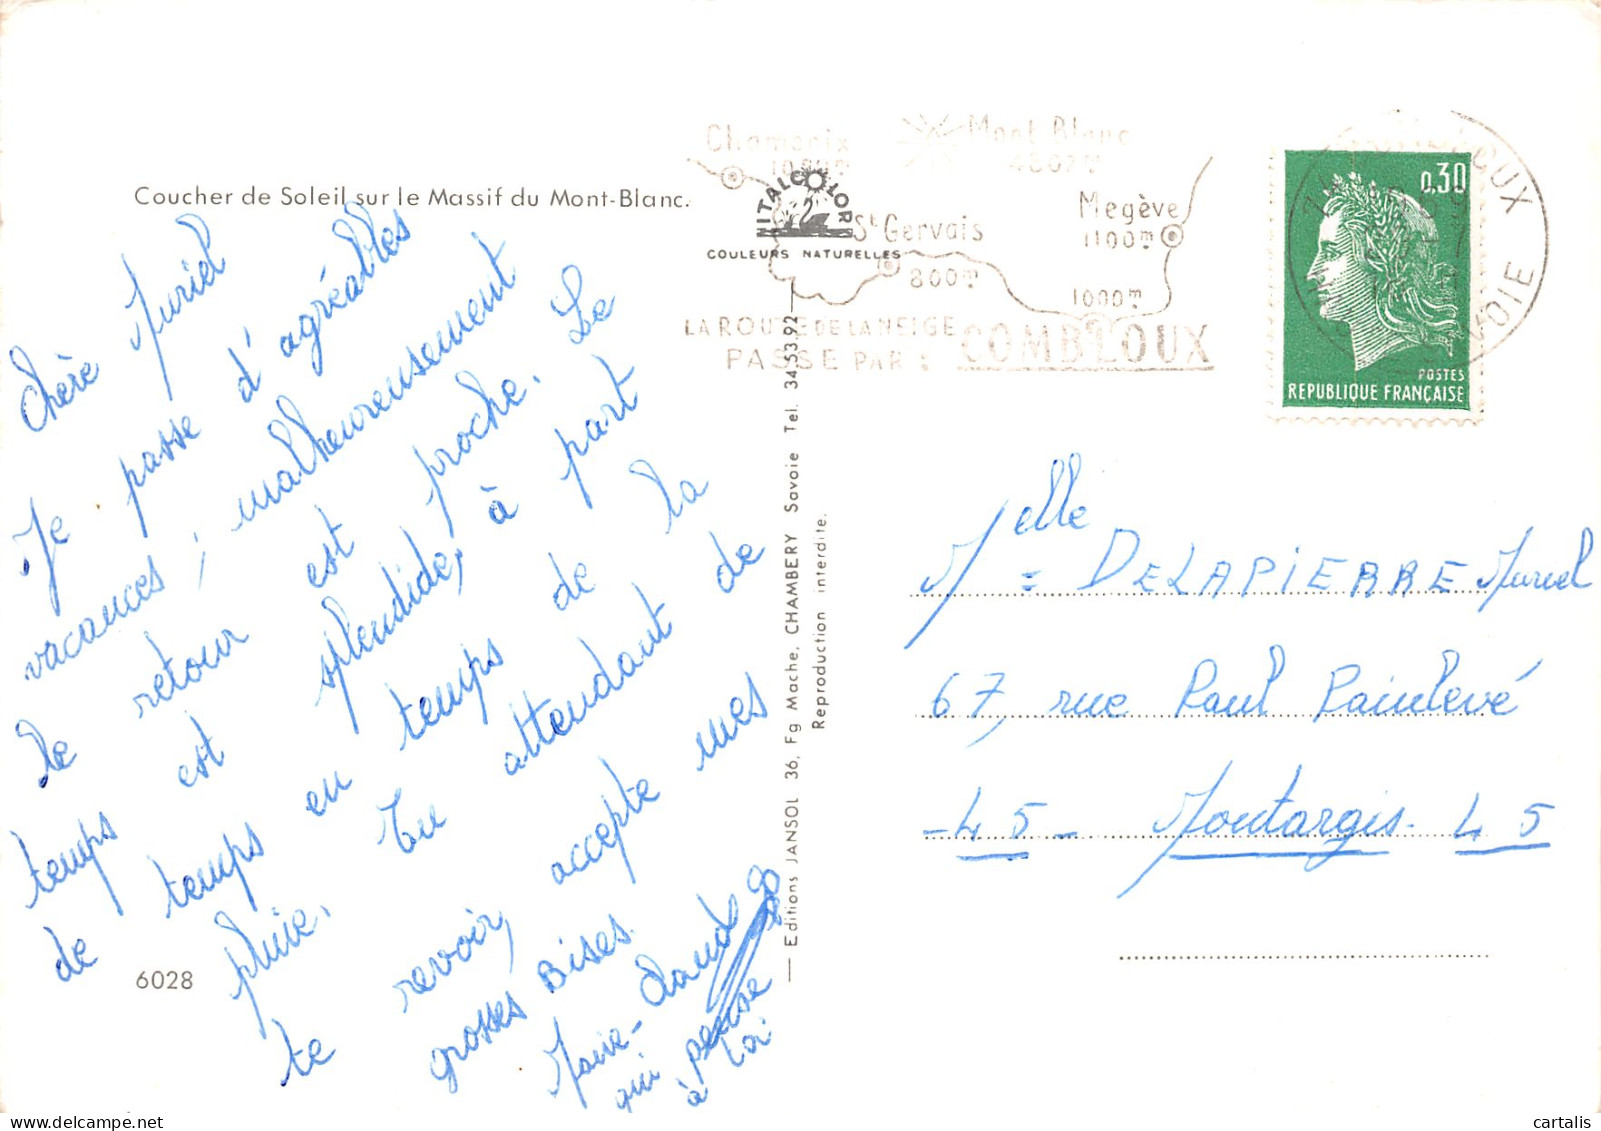 Coucher de Soleil sur le Massif du Mont-Blanc.
Chère Muriel
Je passe d'agréables
vacances, malheureusement
le retour est proche. Le
temps est splendide, à part
de temps en temps de la
pluie. En attendant de
te revoir, accepte mes
grosses Bises.
Marie-Claude
qui pense
à toi
6028
Editions JANSOL 36, Fg Mache, CHAMBERY Savoie Tel. 34.53.92
Reproduction interdite.
ITALCOLOR
COULEURS NATURELLES
Chamonix
Mont Blanc
4807m
St Gervais
800m
Megève
1100m
1000m
LA ROUTE DE LA NEIGE
PASSE PAR : COMBLOUX
0,30
POSTES
REPUBLIQUE FRANÇAISE
Melle = DELAPIERRE Muriel
67, rue Paul Painlevé
-45- Montargis. 45
cartalis